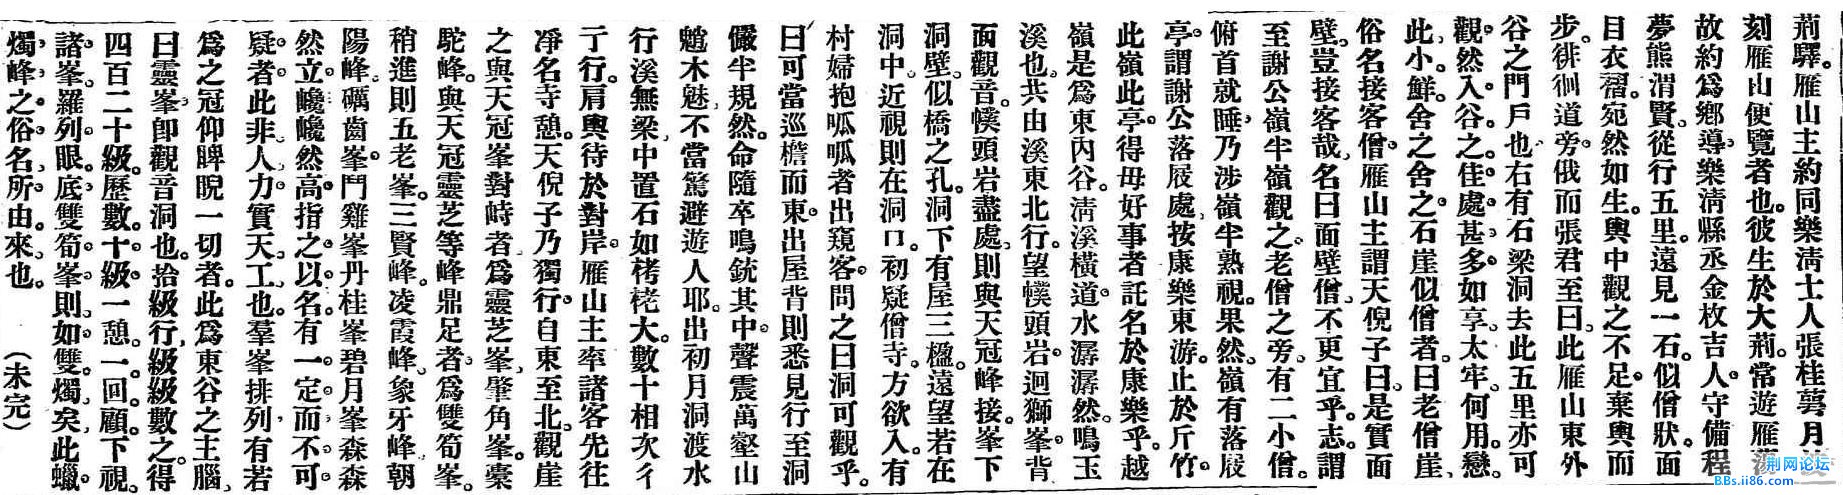 荊驛。雁山主約同樂淸士人張桂蕚月
刻雁山便覽者也。彼生於大荊。常遊雁蕩
故約爲鄉導。樂淸縣丞金枚吉人。守備程
夢熊渭賢。從行五里。遠見一石。似僧狀。面
目衣褶。宛然如生。輿中觀之不足。棄輿而
步。徘徊道旁。俄而張君至曰。此雁山東外
谷之門戶也。右有石梁洞。去此五里。亦可
觀。然入谷之佳處甚多。如享太牢。何用戀
此小鮮。舍之。舍之。石崖似僧者。曰老僧崖。
俗名接客僧。雁山主謂天倪子曰。是實面
壁。豈接客哉。名曰面壁僧。不更宜乎。志謂
至謝公嶺半嶺觀之。老僧之旁。有二小僧。
俯首就睡。乃涉嶺半熟視。果然。嶺有落屐
亭。謂謝公落屐處。按康樂東游。止於斤竹。
此嶺此亭。得毋好事者託名於康樂乎。越
嶺是爲東內谷。淸溪橫道。水潺潺然。鳴玉
溪也。共由溪東北行。望幞頭岩。迴獅峯。背
面觀音。幞頭岩盡處。則與天冠峰接。峯下
洞壁。似橋之孔。洞下有屋三楹。遠望若在
洞中。近視則在洞口。初疑僧寺。方欲入。有
村婦抱呱呱者出窺客。問之。曰洞可觀乎。
曰可。當巡檐而東。出屋背則悉見。行至洞
儼半規然。命隨卒鳴銃其中。聲震萬壑。山
魈木魅。不當驚避遊人耶。出初月洞。渡水
行溪無梁。中置石如栲栳大。數十相次。彳
亍行。肩輿待於對岸。雁山主率諸客先往
凈名寺憩。天倪子乃獨行。自東至北。觀崖
之與天冠峯對峙者。爲靈芝峯。肇角峯。橐
駝峰。與天冠靈芝等峰鼎足者。爲雙筍峯。
稍進則五老峯。三賢峰。凌霞峰。象牙峰。朝
陽峰。礪齒峯。鬥雞峯。丹桂峯。碧月峯。森森
然立。巉巉然高。指之以名。有一定而不可
疑者。此非人力。實天工也。羣峯排列。有若
爲之冠。仰睥睨一切者。此爲東谷之主腦。
曰靈峯。卽觀音洞也。拾級行。級級數之。得
四百二十級。歷數十級一憩。一回顧。下視。
諸峯。羅列眼底。雙筍峯。則如雙燭矣。此蠟
燭峰之俗名所由來也。　（未完）
荆网论坛
BBs.ii86.com